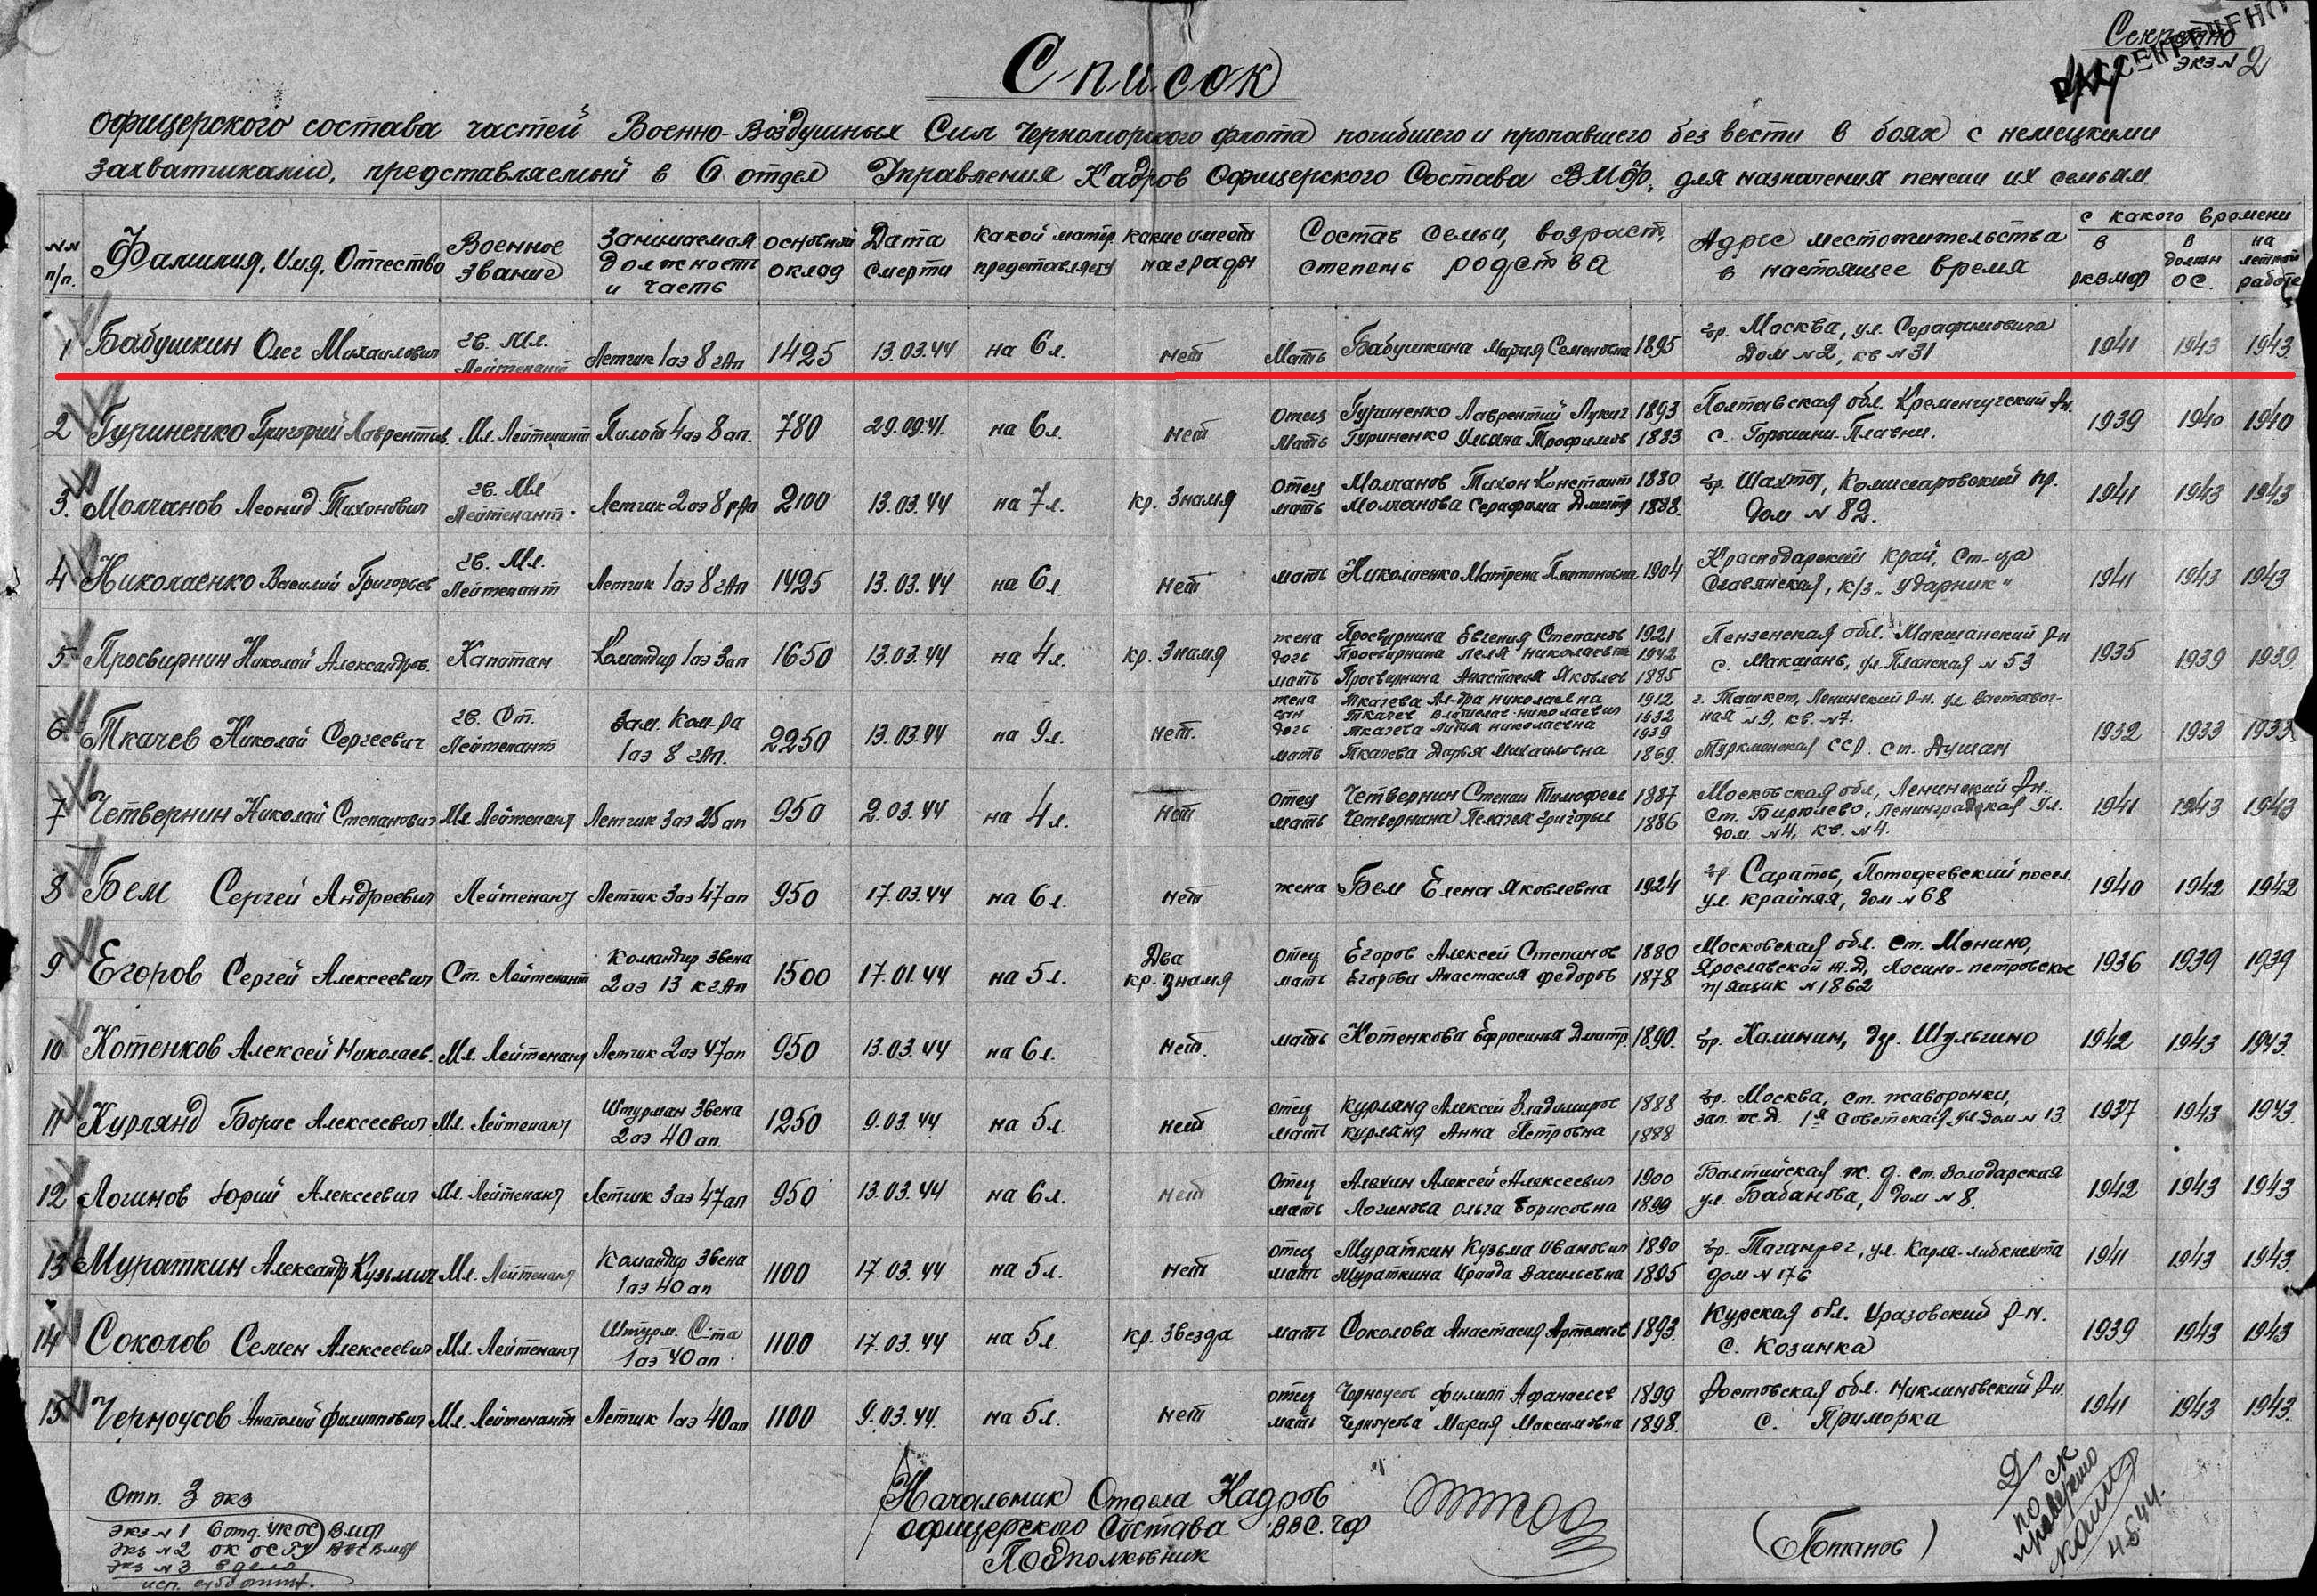 Секретно
РАССЕКРЕЧЕНО
экз. N 2
Список
офицерского состава частей Военно-Воздушных Сил Черноморского флота погибшего и пропавшего без вести в боях с немецкими
захватчиками, представляемый в 6 отдел Управления Кадров Офицерского Состава ВМФ, для назначения пенсии их семьям
NN п/п. Фамилия, Имя, Отчество Военное звание Занимаемая должность и часть основной оклад Дата смерти Какой матер. представляется какие имеет награды Состав семьи, возраст, степень родства Адрес местожительства в настоящее время с какого времени в РКВМФ в должн ОС. на летной работе
1 Бабушкин Олег Михайлович гв. Мл. Лейтенант Летчик 1 аэ 8 гАп 1425 13.03.44 на 6 л. нет Мать Бабушкина Мария Семеновна 1895 гр. Москва, ул. Серафимовича Дом N 2, кв N 31 1941 1943 1943.
2 Гуриненко Григорий Лаврентьев. Мл. Лейтенант Пилот 4 аэ 8 ап. 780 29.09.41. на 6 л. нет
Отец Гуриненко Лаврентий Лукич 1893 Полтавская обл. Кременчугский р-н. 1939 1940 1940
Мать Гуриненко Ульяна Трофимов 1883 с. Горишни-Плавни.
3. Молчанов Леонид Тихонович гв. Мл Лейтенант. Летчик 2 аэ 8 гАп 2100 13.03.44 на 7 л. кр. Знамя
Отец Молчанов Тихон Константи 1880 гр. Шахты, Комиссаровский пр. 1941 1943 1943
мать Молчанова Серафима Дмитр 1888. Дом N 82.
4 Николаенко Василий Григорьев гв. Мл. Лейтенант Летчик 1 аэ 8 гАп 1425 13.03.44 на 6 л. нет мать Николаенко Матрена Платоновна 1904 Краснодарский край, ст-ца Славянская, к/з „Ударник" 1941 1943 1943
5. Просвирнин Николай Александров. Капитан Командир 1 аэ 3 ап 1650 13.03.44 на 4 л. кр. Знамя
жена Просвирнина Евгения Степанов 1921 Пензенская обл. Мокшанский р-н 1935 1939 1939.
дочь Просвирнина Леля Николаевна 1942 с. Мокшань, ул. Планская N 53
мать Просвирнина Анастасия Яковлев 1885
6 Ткачев Николай Сергеевич гв. Ст. Лейтенант Зам. Ком-ра 1 аэ 8 гАп. 2250 13.03.44 на 9 л. нет.
жена Ткачева Ал-дра Николаевна 1912 г. Ташкент, Ленинский р-н. ул. 1932 1933 1933
сын Ткачев Николаевич 1932 N 9, кв. N 7.
дочь Ткачева Лидия Николаевна 1939
мать Ткачева Дарья Михайловна 1869. Туркменская ССР. ст. Душан
7 Четвернин Николай Степанович Мл. Лейтенант Летчик 3 аэ 25 ап 950 2.03.44 на 4 л. нет
Отец Четвернин Степан Тимофеев 1887 Московская обл, Ленинский р-н. 1941 1943 1943
мать Четвернина Пелагея Григорьев 1886 ст. Бирюлево, Ленинградская ул. дом. N 4, кв. N 4.
8 Бем Сергей Андреевич Лейтенант Летчик 3 аэ 47 ап 950 17.03.44 на 6 л. нет жена Бем Елена Яковлевна 1924 гр. Саратов, посел. ул. крайняя, дом N 68 1940 1942 1942
9 Егоров Сергей Алексеевич Ст. Лейтенант командир звена 2 аэ 13 кгАп 1500 17.01.44 на 5 л. Два кр. Знамя
Отец Егоров Алексей Степанов 1880 Московская обл. ст. Монино, 1936 1939 1939
мать Егорова Анастасия Федоров 1878 Ярославской ж.д, Лосино-петровское п/ящик N 1862
10 Котенков Алексей Николаев. Мл. Лейтенант Летчик 2 аэ 47 ап 950 13.03.44 на 6 л. нет. мать Котенкова Ефросинья Дмитр. 1890. гр. Калинин, дер. Шульгино 1942 1943 1943.
11 Курлянд Борис Алексеевич Мл. Лейтенант Штурман звена 2 аэ 40 ап. 1250 9.03.44 на 5 л. нет
отец Курлянд Алексей Владимиров 1888 гр. Москва, ст. жаворонки, 1937 1943 1943.
мать Курлянд Анна Петровна 1888 зап. ж.д. 1я Советская ул. дом N 13
12 Логинов Юрий Алексеевич Мл. Лейтенант Летчик 3 аэ 47 ап 950 13.03.44 на 6 л. нет
Отец Алексей Алексеевич 1900 Балтийская ж.д. ст. Володарская 1942 1943 1943
мать Логинова Ольга Борисовна 1899 ул. Бабанова, дом N 8.
13 Мураткин Александр Кузьмич Мл. Лейтенант Командир звена 1 аэ 40 ап 1100 17.03.44 на 5 л. нет
отец Мураткин Кузьма Иванович 1890 гр. Таганрог, ул. Карла-либкнехта 1941 1943 1943.
мать Мураткина Ираида Васильевна 1895 дом N 176
14 Соколов Семен Алексеевич Мл. Лейтенант Штурм. 1 аэ 40 ап. 1100 17.03.44 на 5 л. кр. Звезда мать Соколова Анастасия Артемьев 1893. Курская обл. Уразовский р-н. с. Козинка 1939 1943 1943
15 Черноусов Анатолий Филиппович Мл. Лейтенант Летчик 1 аэ 40 ап 1100 9.03.44. на 5 л. нет
отец Черноусов Филипп Афанасьев 1899 Ростовская обл. Никлиновский р-н. 1941 1943 1943.
мать Черноусова Мария Максимовна 1898. с. Приморка
Отп. 3 экз
экз N 1 6 отд. УКОС ВМФ
экз N 2
экз N 3 в дело
Начальник Отдела Кадров
офицерского Состава ВВС. ЧФ
Подполковник
(Потапов)
по
проверено
4.5.44.